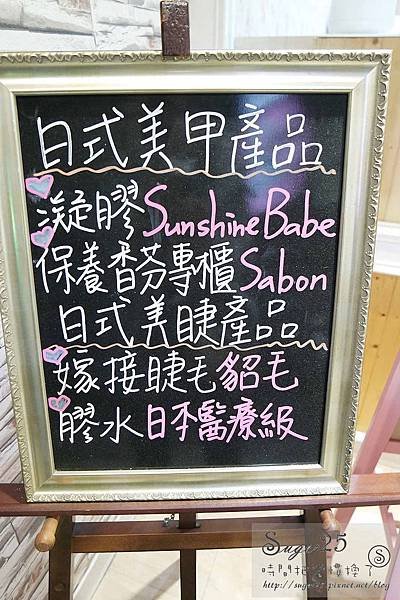 日式美甲產品
凝膠Sunshine Babe
保養香芬專櫃Sabon
日式美睫產品
嫁接睫毛貂毛
膠水日本醫療級
Sugar25